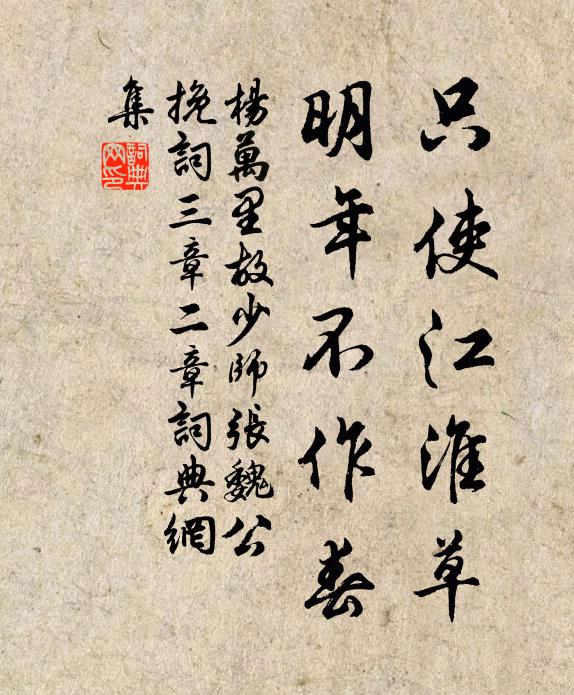 只使江淮草
明年不作春
楊萬里故少師張魏公
挽詞三章二章詞典網
集
詞典
网印